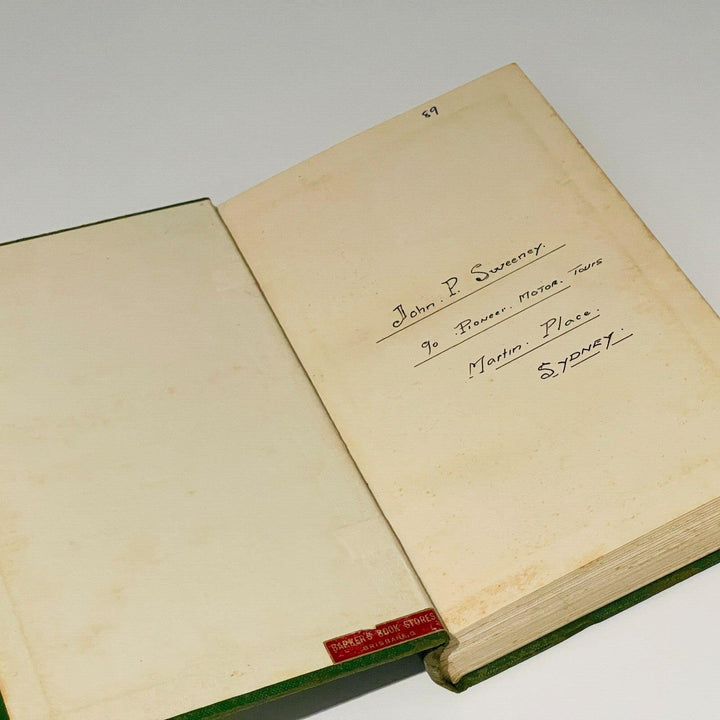 89
John. P. Sweeney.
c/o Pioneer. MOTOR. Tours
Martin. Place.
SYDNEY.
BARKER'S BOOK STORES
BRISBANE.